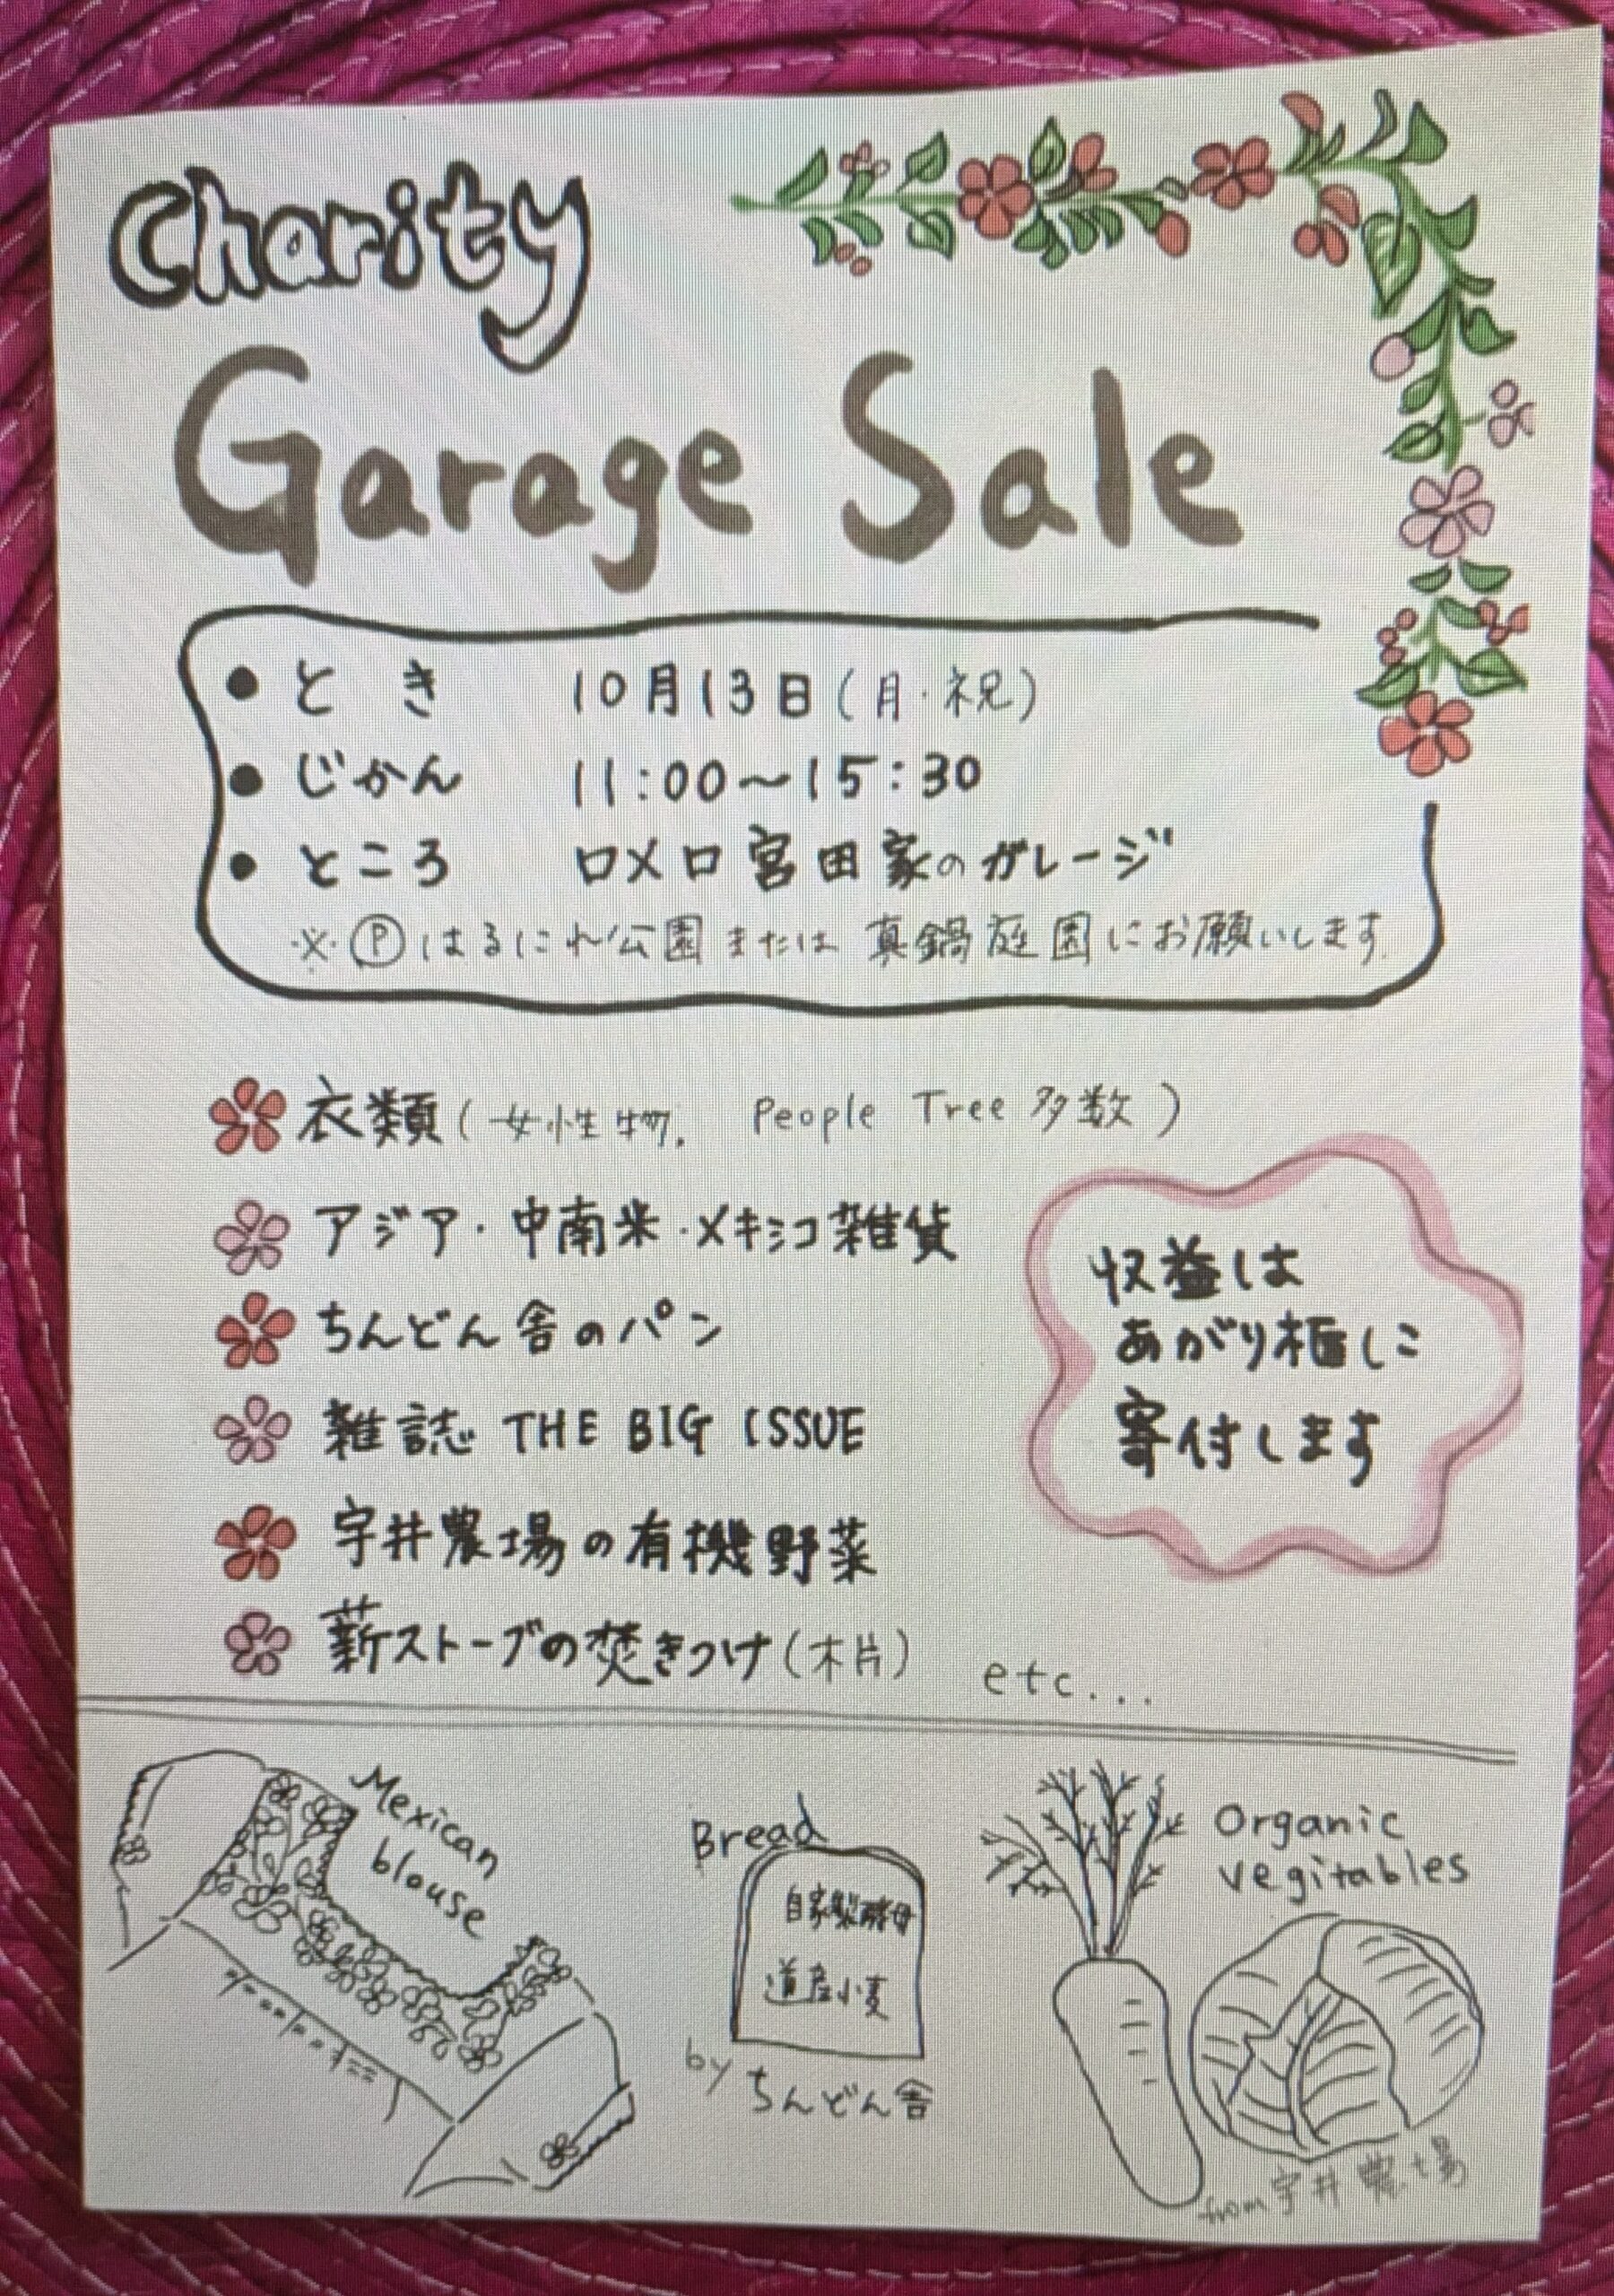 Charity
Garage Sale
● とき 10月13日(月・祝)
● じかん 11:00〜15:30
● ところ ロメロ宮田家のガレージ
※Ⓟはるにれ公園または真鍋庭園にお願いします
衣類(女性物. People Tree 多数)
アジア・中南米・メキシコ雑貨
ちんどん舎のパン
雑誌 THE BIG ISSUE
宇井農場の有機野菜
薪ストーブの焚きつけ(木片) etc...
収益は
あがり框に
寄付します
Mexican
blouse
Bread
自家製酵母
道産小麦
by ちんどん舎
Organic
vegitables
from 宇井農場